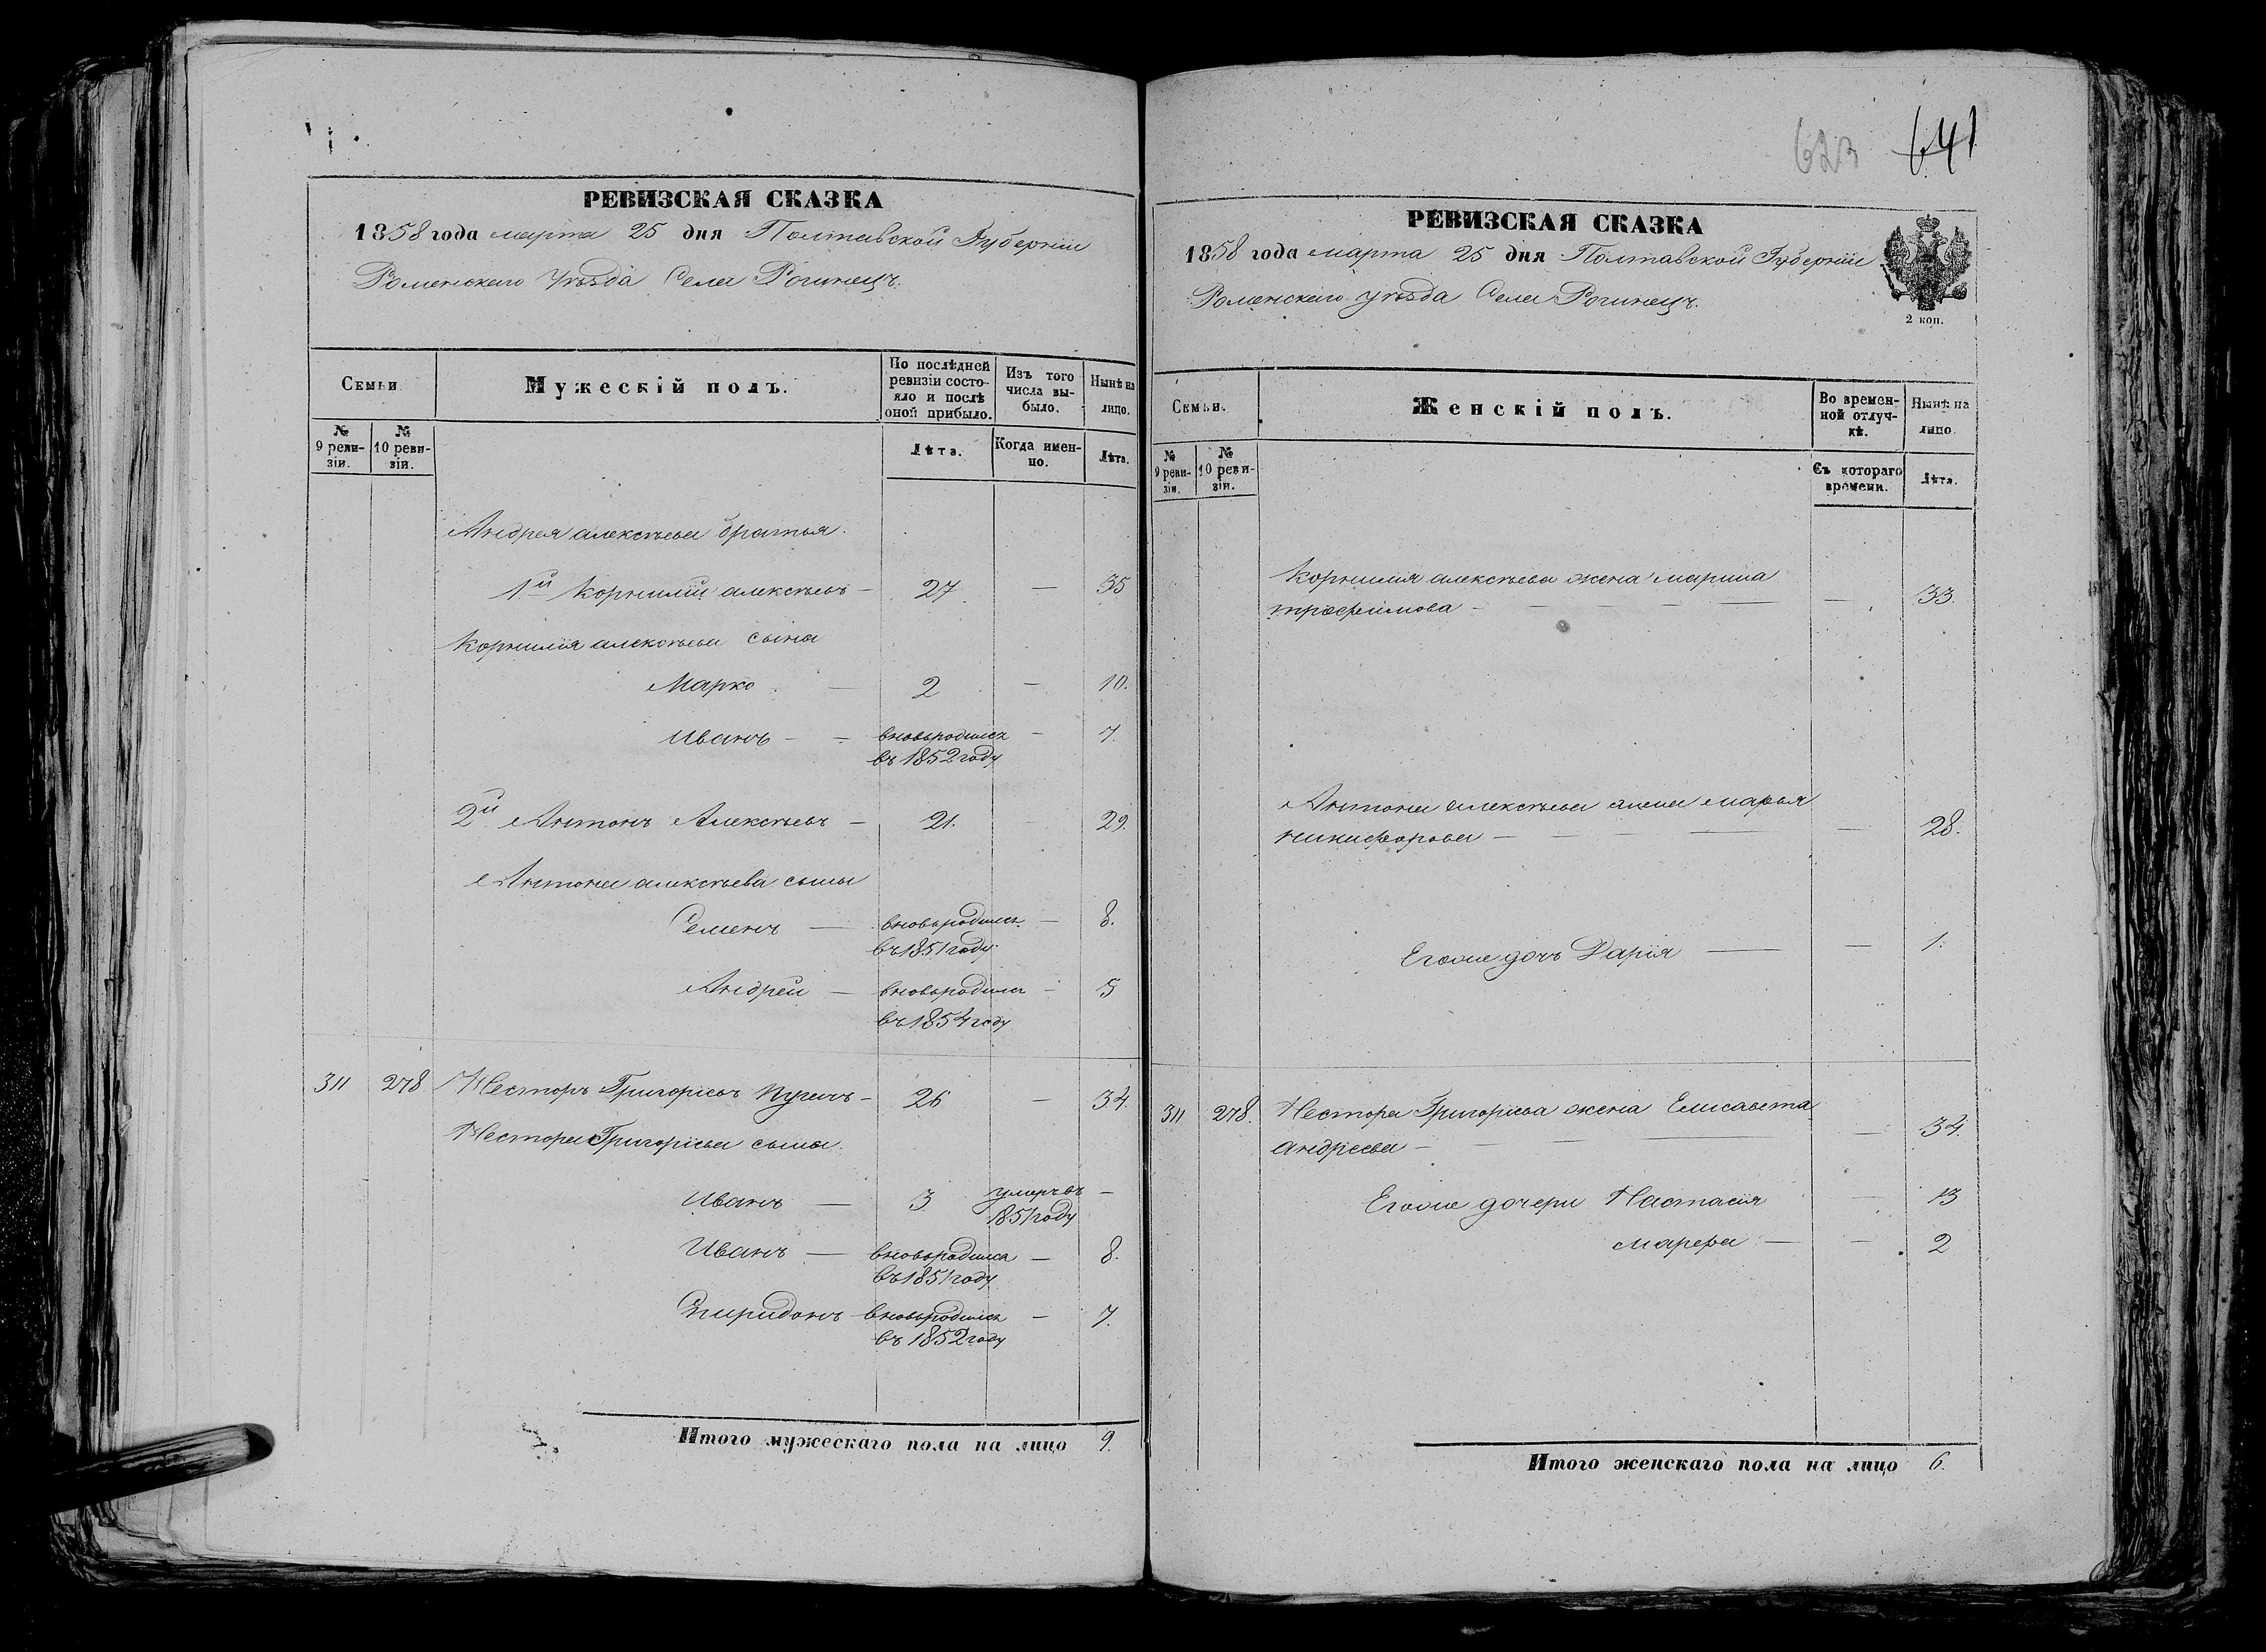 РЕВИЗСКАЯ СКАЗКА
1858 года марта 25 дня Полтавской Губерніи
Роменскаго Уѣзда Села Рогинецъ.
Семьи.
Мужескій полъ.
По послѣдней ревизіи состояло и послѣ оной прибыло.
Изъ того числа выбыло.
Нынѣ на лицо.
№ 9 ревизіи.
№ 10 ревизіи.
Лѣта.
Когда именно.
Лѣта.
Андрея алексѣева братья.
1й Корнилій алексѣевъ — 27 — 35
Корнилія алексѣева сыны
Марко — 2 — 10.
Иванъ — — вновьродился — 7.
въ 1852 году
2й Антонъ Алексѣевъ — 21. 29.
Антона алексѣева сыны
Семенъ — вновьродился — 8.
въ 1851 году
Андрей — вновьродился — 5
въ 1854 году
311 278 Несторъ Григорьевъ — 26 — 34.
Нестора Григорьева сыны.
Иванъ — 3 умеръ въ —
1851 году
Иванъ — вновьродился — 8.
въ 1851 году
Спиридонъ вновьродился — 7.
въ 1852 году
Итого мужескаго пола на лицо 9.
623 641
РЕВИЗСКАЯ СКАЗКА
1858 года марта 25 дня Полтавской Губерніи
Роменскаго уѣзда Села Рогинецъ.
2 коп.
Семьи.
Женскій полъ.
Во временной отлучкѣ.
Нынѣ на лицо.
№ 9 ревизіи.
№ 10 ревизіи.
Съ котораго времени.
Лѣта.
Корнилія алексѣева жена марина
трофимова — — 33.
Антона алексѣева жена марья
никифорова — — 28.
Егоже дочь Дарія — — 1.
311 278. Нестора Григорьева жена Елисавета
андреева — — 34.
Егоже дочери Настасія — 13
марфа — — 2
Итого женскаго пола на лицо 6.